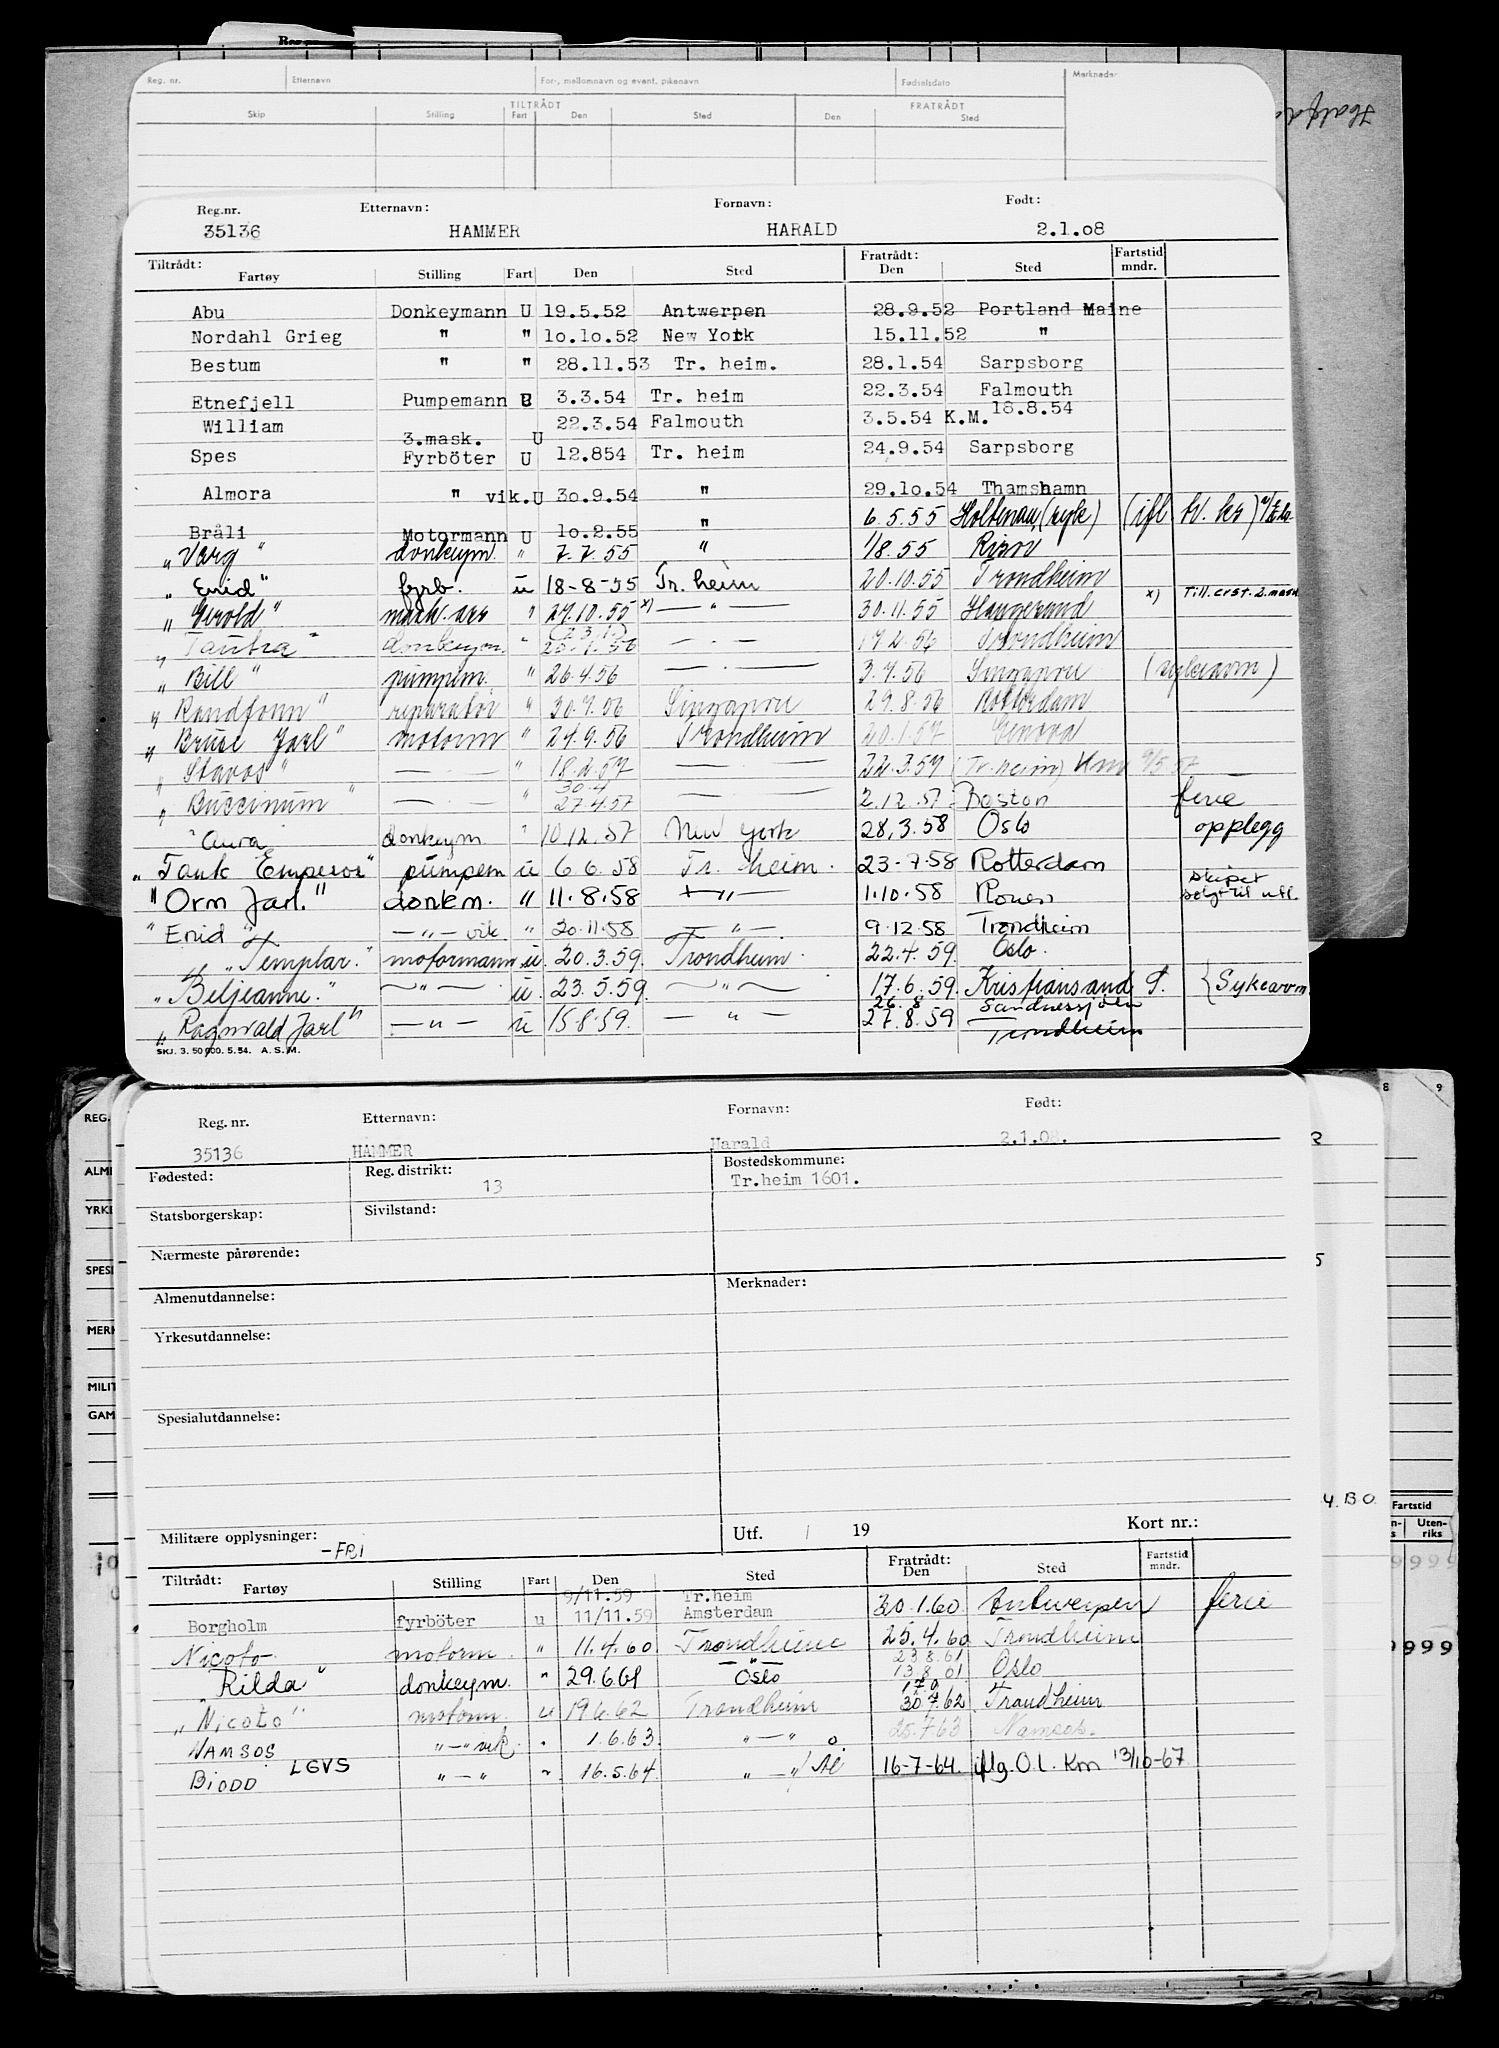 Reg. nr. Etternavn For-, mellomnavn og event. pikenavn Fødselsdato Merknader
TILTRÅDT FRATRÅDT
Skip Stilling Fart Den Sted Den Sted
Reg.nr. Etternavn: Fornavn: Født:
35136 HAMMER HARALD 2.1.08
Tiltrådt: Fratrådt: Fartstid
Fartøy Stilling Fart Den Sted Den Sted mndr.
Abu Donkeymann U 19.5.52 Antwerpen 28.9.52 Portland Maine
Nordahl Grieg " " 10.10.52 New York 15.11.52 "
Bestum " " 28.11.53 Tr. heim. 28.1.54 Sarpsborg
Etnefjell Pumpemann U 3.3.54 Tr. heim 22.3.54 Falmouth
William 3.mask. U 22.3.54 Falmouth 3.5.54 K.M. 18.8.54
Spes Fyrböter U 12.854 Tr. heim 24.9.54 Sarpsborg
Almora " vik. U 30.9.54 " 29.10.54 Thamshamn
Bråli Motormann U 10.2.55 " 6.5.55 Holtenau, (syk)
"Varg" donkeym. " 7.7.55 " 1/8.55 Risør
"Enid" fyrb. u 18-8-55 Tr. heim 20.10.55 Trondheim
"Gerold" mask. ass " 27.10.55 x) — " — 30.11.55 Haugesund x) Till. erst. 2. mask
"Tautra" donkeym " — . — 17.2.56 Trondheim
"Bill" pumpem. " 26.4.56 — . — 3.7.56 Singapore (sykeavm)
"Randfonn" reparatør " 30.7.56 Singapore 29.8.56 Rotterdam
"Bruse Jarl" motorm " 27.9.56 Trondheim 20.1.57 Genova
"Stavos" — . — " 18.2.57 — . — 22.3.57 (Tr. heim)
"Buccinum" — . — " 30.4 27.4.57 — . — 2.12.57 Boston ferie
"Aura donkeym " 10.12.57 New York 28.3.58 Oslo opplegg
"Tank Emperor" pumpem u 6.6.58 Tr. heim. 23-7-58 Rotterdam
"Orm Jarl." donkm. " 11.8.58 — " — 1.10.58 Rouen skipet solgt til utl.
"Enid" — " — vik. " 20.11.58 — " — 9.12.58 Trondheim
"Templar." motormann u. 20.3.59. Trondheim. 22.4.59. Oslo.
"Beljeanne." — " — u. 23.5.59. — " — 17.6.59. Kristiansand S. {Sykeavm.
"Ragnvald Jarl" — " — u 15.8.59. — " — 26.8 27.8.59 Sandnessjøen Trondheim
SKJ. 3. 50 000. 5. 54. A. S. M.
8 9
REG.
ALM
YRKE
SPESI
MERK
MILIT
GAM
Reg. nr. Etternavn: Fornavn: Født:
35136 HAMMER Harald 2.1.08.
Fødested: Reg. distrikt: 13 Bostedskommune: Tr.heim 1601.
Statsborgerskap: Sivilstand:
Nærmeste pårørende:
Almenutdannelse: Merknader:
Yrkesutdannelse:
Spesialutdannelse:
4. BO.
Fartstid
Uten-
riks
Militære opplysninger: -FRI Utf. / 19 Kort nr.:
Tiltrådt: Fratrådt: Fartstid
Fartøy Stilling Fart Den Sted Den Sted mndr.
9/11.59 Tr.heim
Borgholm fyrböter u 11/11.59 Amsterdam 30.1.60. Antwerpen ferie
Nicoto motorm. " 11.4.60 Trondheim 25.4.60 Trondheim
"Rilda" donkeym. " 29.6.61 Oslo 23.8.61 13.8.61 Oslo
"Nicoto" motorm. u 19.6.62 Trondheim 30.7.62 Trondheim
NAMSOS " — " vik. " 1.6.63. " — " 25.7.63 Namsos.
BIODD LGVS " — " " 16.5.64. " — " 16-7-64. iflg. O.l. Km 13/10-67
9999
999